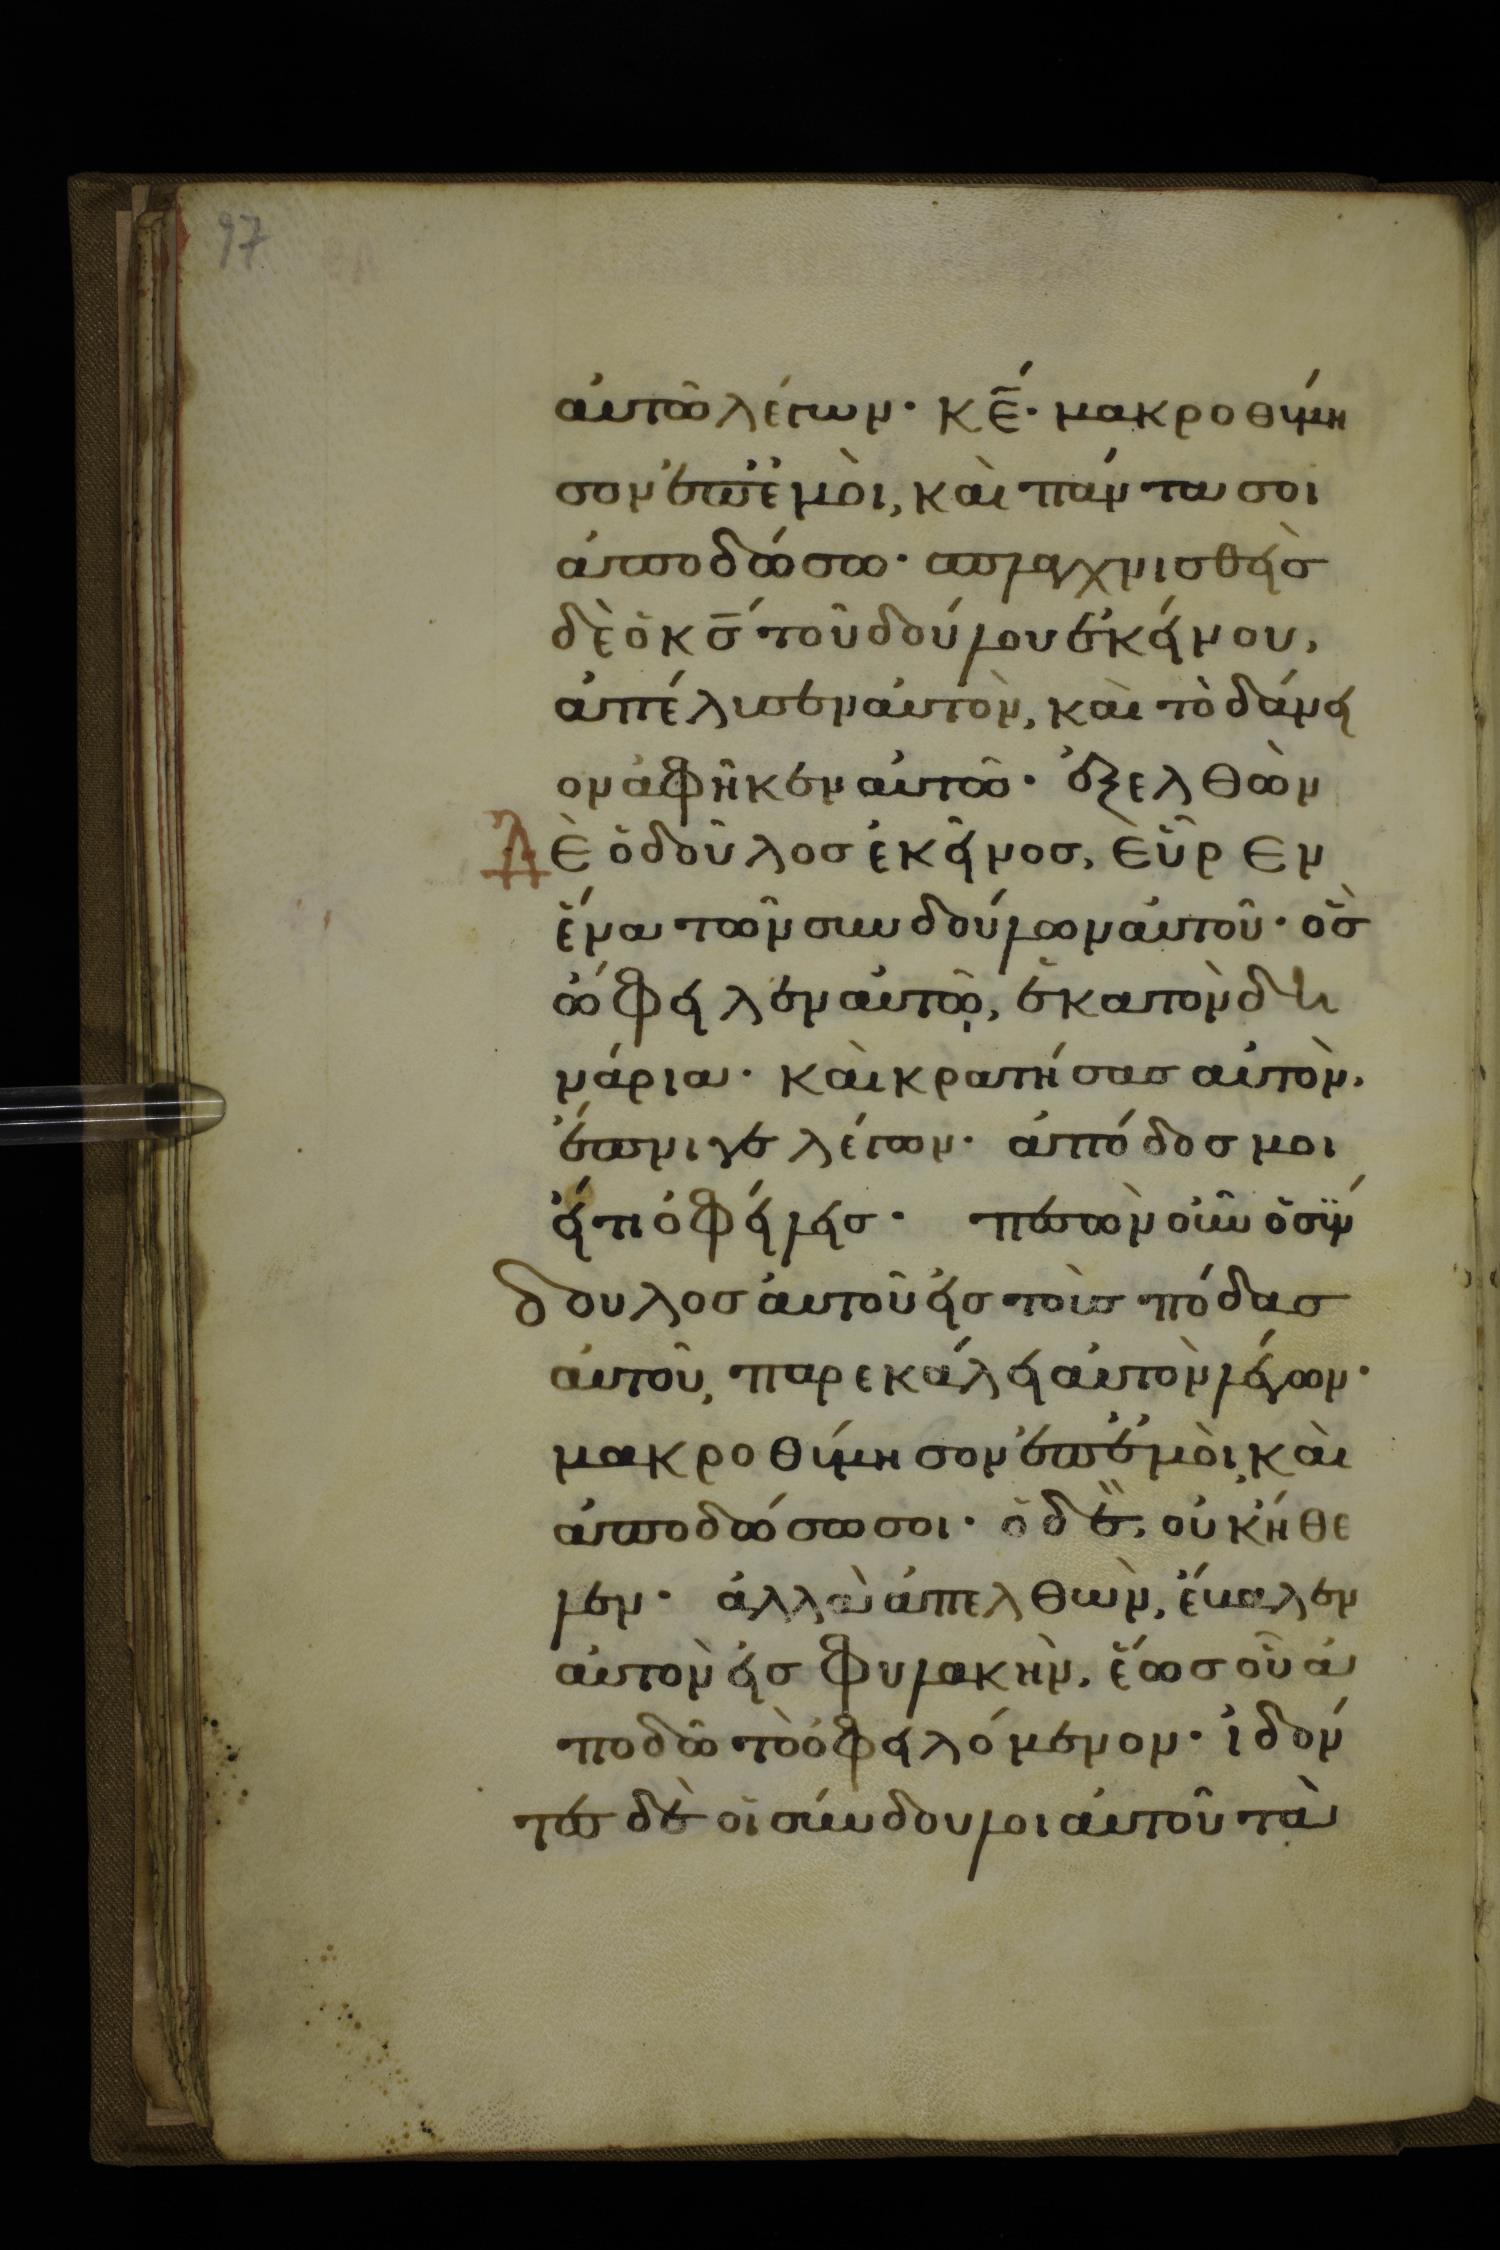 97
αὐτῶ λέγων· κε̅· μακροθύμη
σον ἐπ' ἐμοὶ, καὶ πάντα σοι
ἀποδώσω· σπλαγχνισθεὶσ
δὲ ὁ κσ̅ τοῦ δούλου ἐκείνου,
ἀπέλυσεν αὐτὸν, καὶ τὸ δάνει
ον ἀφῆκεν αὐτῶ· ἐξελθὼν
Δὲ ὁ δοῦλοσ ἐκεῖνοσ, εὗρεν
ἕνα τῶν συνδούλων αὐτοῦ· ὃσ
ὤφειλεν αὐτῶ, ἑκατὸν δη
νάρια· καὶ κρατήσασ αὐτὸν,
ἔπνιγε λέγων· ἀπόδοσ μοι
εἴ τι ὀφείλεισ· πεσὼν οὖν ὁ σύν
δουλοσ αὐτοῦ εἰσ τοὺσ πόδασ
αὐτοῦ, παρεκάλει αὐτὸν λέγων·
μακροθύμησον ἐπ' ἐμοὶ, καὶ
ἀποδώσω σοι· ὁ δὲ, οὐκ ἤθε
λεν· ἀλλὰ ἀπελθὼν, ἔβαλεν
αὐτὸν εἰσ φυλακὴν, ἕωσ οὗ ἀ
ποδῶ τὸ ὀφειλόμενον· ἰδόν
τεσ δὲ οἱ σύνδουλοι αὐτοῦ τὰ